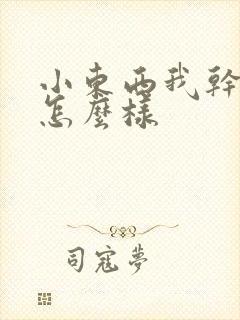 小東西我幹
怎麼樣
司寇夢